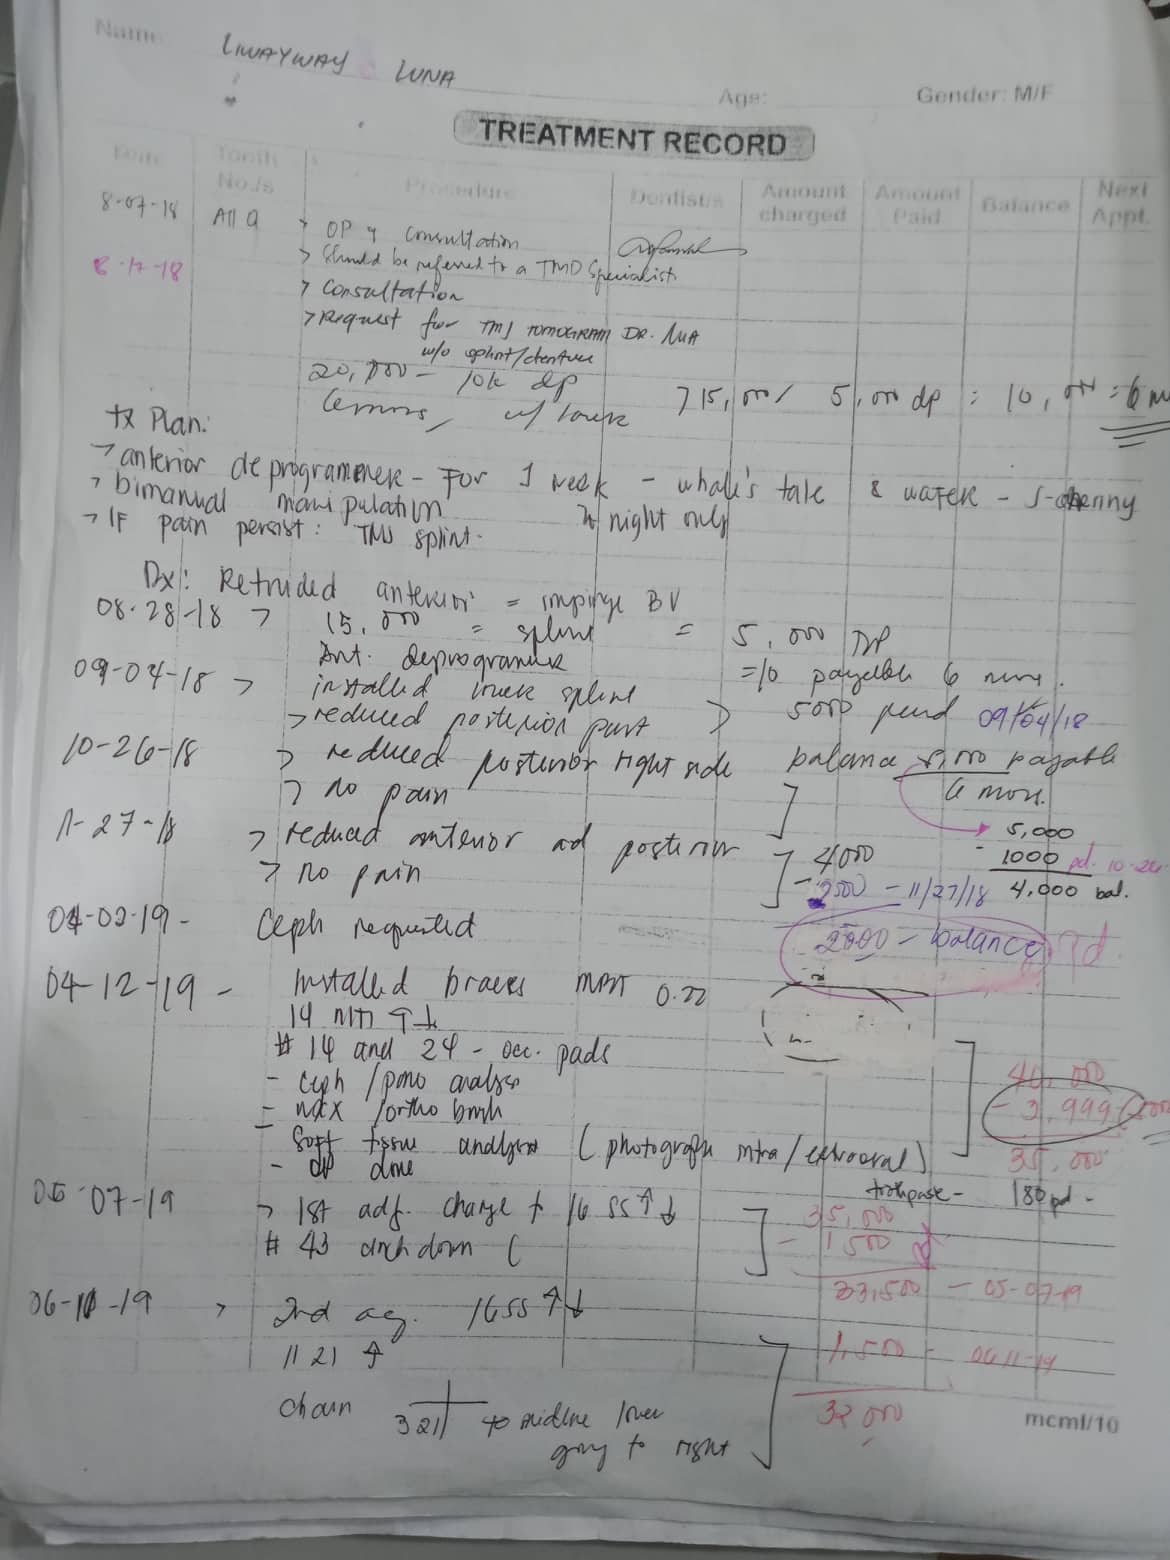 Name: LIWAYWAY LUNA
Age: Gender: M/F
TREATMENT RECORD
Date Tooth No./s Procedure Dentist/s Amount charged Amount Paid Balance Next Appt.
8-07-18 All 9 > OP 4 consultation
> Should be referred to a TMD Specialist
8-17-18 > Consultation
> Request for TMJ TOMOGRAM DR.
w/o splint/denture
20,000 - 10k dp 715,000/ 5,000 dp : 10,000 = 6 m
w/ lower
tx Plan:
> anterior deprogrammer - For 1 week - whale's tale & wafer - J-
> bimanual manipulation night only
> IF pain persist: TMJ splint.
Dx: Retruded anterior = impinge BV
08-28-18 > 15,000 = splint = 5,000 DP
Ant. deprogrammer =10 payable 6 mos.
09-04-18 > installed lower splint
> reduced posterior part > 5000 paid 09/04/18
10-26-18 > reduced posterior right side balance 5,000 payable
> no pain 6 mos.
5,000
11-27-18 > reduced anterior ad posterior 4000 - 1000 pd. 10-26
> no pain - 2500 - 11/27/18 4,000 bal.
04-02-19 - Ceph requested 2000 - balance Pd.
04-12-19 - Installed braces MBT 0.22
14 niti ↑↓
# 14 and 24 - occ. pads 40,000
- ceph / pano analysis - 3,999
- wax / ortho brush
- Soft tissue analysis (photograph intra/extraoral) 35,000
- dp done toothpaste - 180 pd -
05-07-19 > 1st adj. change to 16 SS ↑↓ 35,000
# 43 cinch down ( - 1500
33,500 - 05-07-19
06-11-19 > 2nd adj. 16SS ↑↓
11 21 ↑ 1,500 - 0611-19
chain 321 to midline lower 32,000
going to right
mcml/10